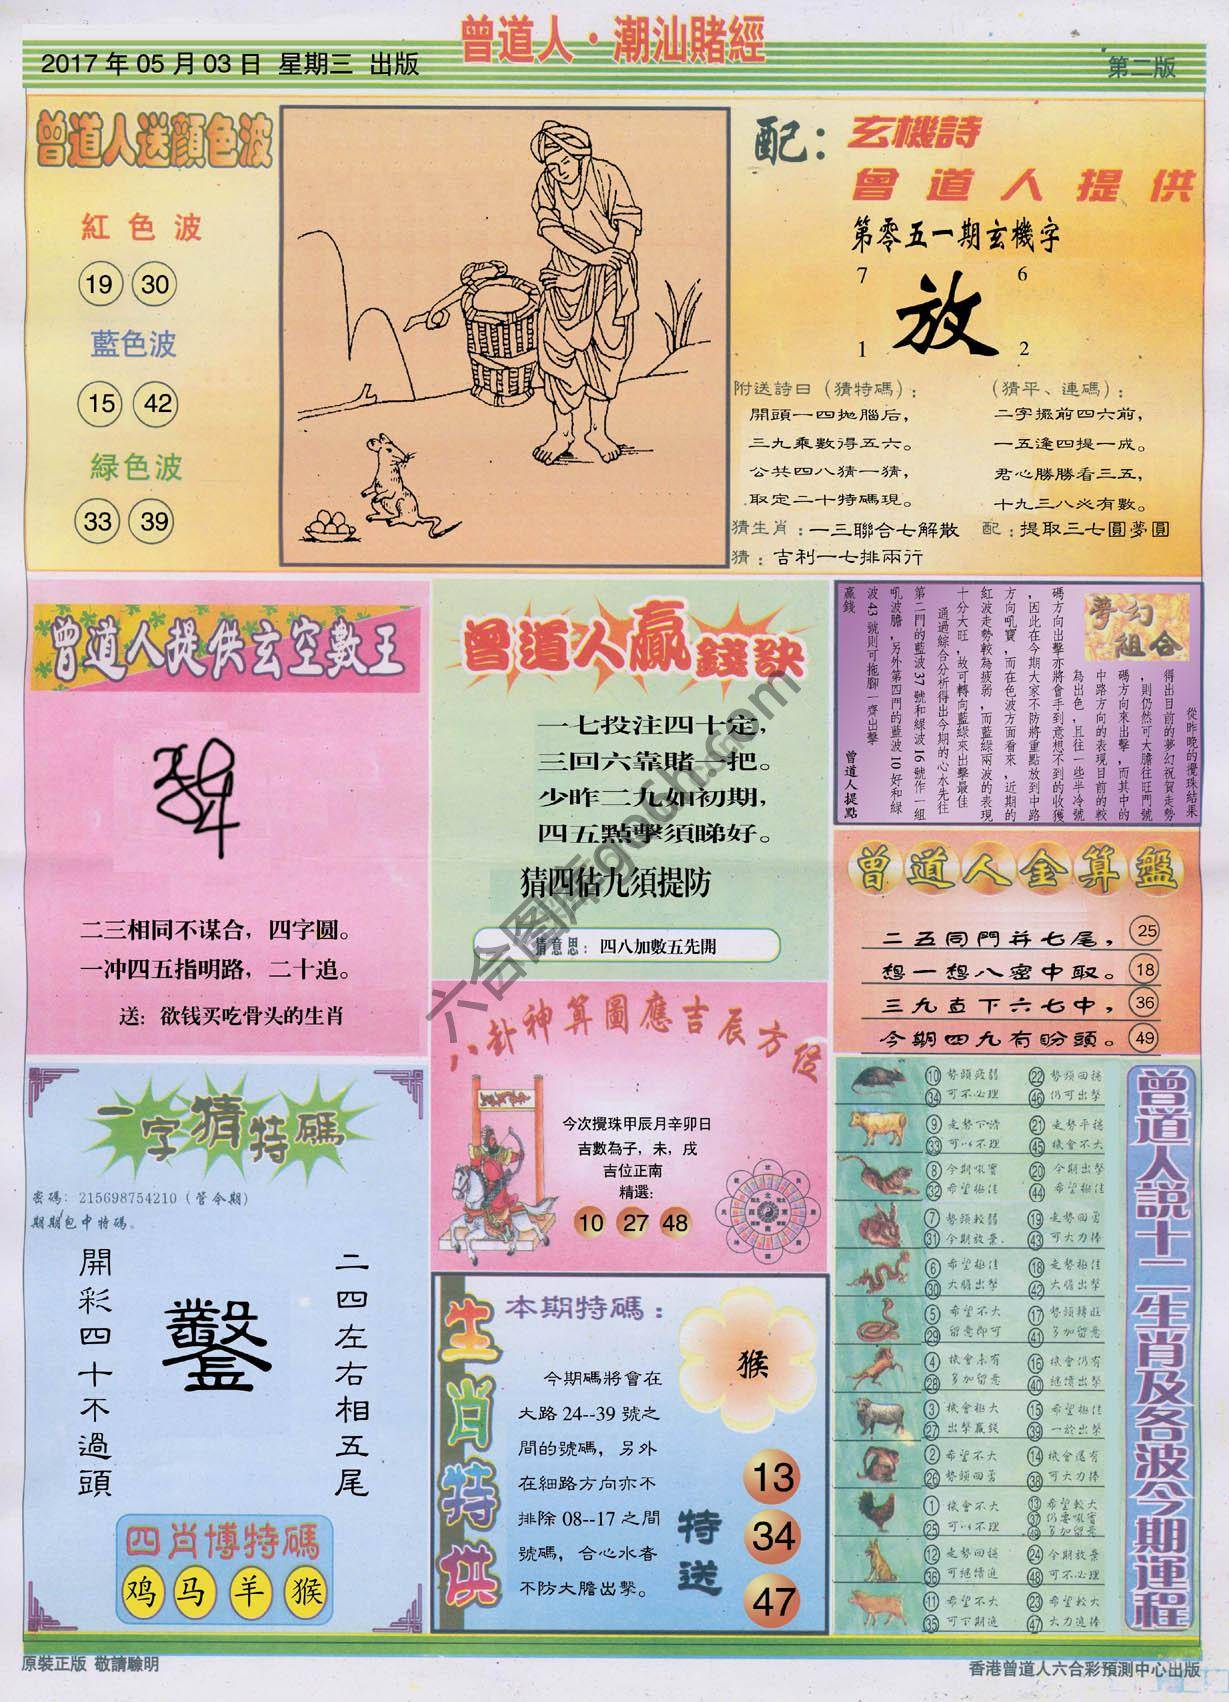 曾道人·潮汕賭經
2017 年 05 月 03 日 星期三 出版
第二版
曾道人送顏色波
紅色波
19 30
藍色波
15 42
緑色波
33 39
配：玄機詩
曾道人提供
第零五一期玄機字
7 6
放
1 2
附送詩曰（猜特碼）：
開頭一四拋腦后，
三九乘數得五六。
公共四八猜一猜，
取定二十特碼現。
（猜平、連碼）：
二字擺前四六前，
一五逢四提一成。
君心勝勝看三五，
十九三八必有數。
猜生肖：一三聯合七解散 配：提取三七圓夢圓
猜：吉利一七排兩行
曾道人提供玄空數王
二三相同不谋合，四字圆。
一冲四五指明路，二十追。
送：欲钱买吃骨头的生肖
曾道人贏錢訣
一七投注四十定，
三回六靠賭一把。
少昨二九如初期，
四五點擊須睇好。
猜四估九須提防
猜意思：四八加數五先開
夢幻組合
從昨晚的攪珠結果
得出目前的夢幻祝賀走勢
，則仍然可大膽往旺門號
碼方向來出擊，而其中的
中路方向的表現目前的較
為出色，且往一些半冷號
碼方向出擊亦將會手到意想不到的收獲
，因此在今期大家不防將重點放到中路
方向吼寶，而在色波方面看來，近期的
紅波走勢較為疲弱，而藍綠兩波的表現
十分大旺，故可轉向藍綠來出擊最佳
通過綜合分析得出今期的心水先往
第二門的藍波 37 號和緑波 16 號作一組
吼波膽，另外第四門的藍波 10 好和緑
波 43 號則可拖腳一齊出擊
贏錢
曾道人提點
曾道人金算盤
二五同門并七尾， 25
想一想八密中取。 18
三九直下六七中， 36
今期四九有盼頭。 49
八卦神算圖應吉辰方位
今次攪珠甲辰月辛卯日
吉數為子，未，戌
吉位正南
精選：
10 27 48
一字猜特碼
密碼：215698754210（管令期）
期期包中特碼。
開彩四十不過頭
鑿
二四左右相五尾
四肖博特碼
鸡 马 羊 猴
生肖特供
本期特碼：
猴
今期碼將會在
大路 24--39 號之
間的號碼，另外
在細路方向亦不
排除 08--17 之間
號碼，合心水者
不防大膽出擊。
特送
13
34
47
曾道人説十二生肖及各波今期運程
10 勢頭疲弱 22 勢頭回穩
34 可不心理 46 仍可出擊
9 走勢下滑 21 走勢平穩
33 可以不理 45 機會不大
8 今期吼寶 20 今期出擊
32 希望極佳 44 希望極佳
7 勢頭較弱 19 走勢回勇
31 今期放棄 43 可大力捧
6 希望極佳 18 走勢極佳
30 大膽出擊 42 大膽出擊
5 希望不大 17 勢頭轉旺
29 留意即可 41 多加留意
4 機會未有 16 機會仍有
28 多加留意 40 繼續出擊
3 機會極大 15 希望極佳
27 出擊贏錢 39 一於出擊
2 希望不大 14 機會還有
26 勢頭回勇 38 可大力捧
1 機會不大 13 希望較大
25 可以不理 37 仍要吼寶
49 多加留意
12 走勢回穩 24 今期放棄
36 可繼續追 48 可不必理
11 希望不大 23 希望較大
35 可下期追 47 大力追捧
六合图库go6h.com
原裝正版 敬請驗明
香港曾道人六合彩預測中心出版